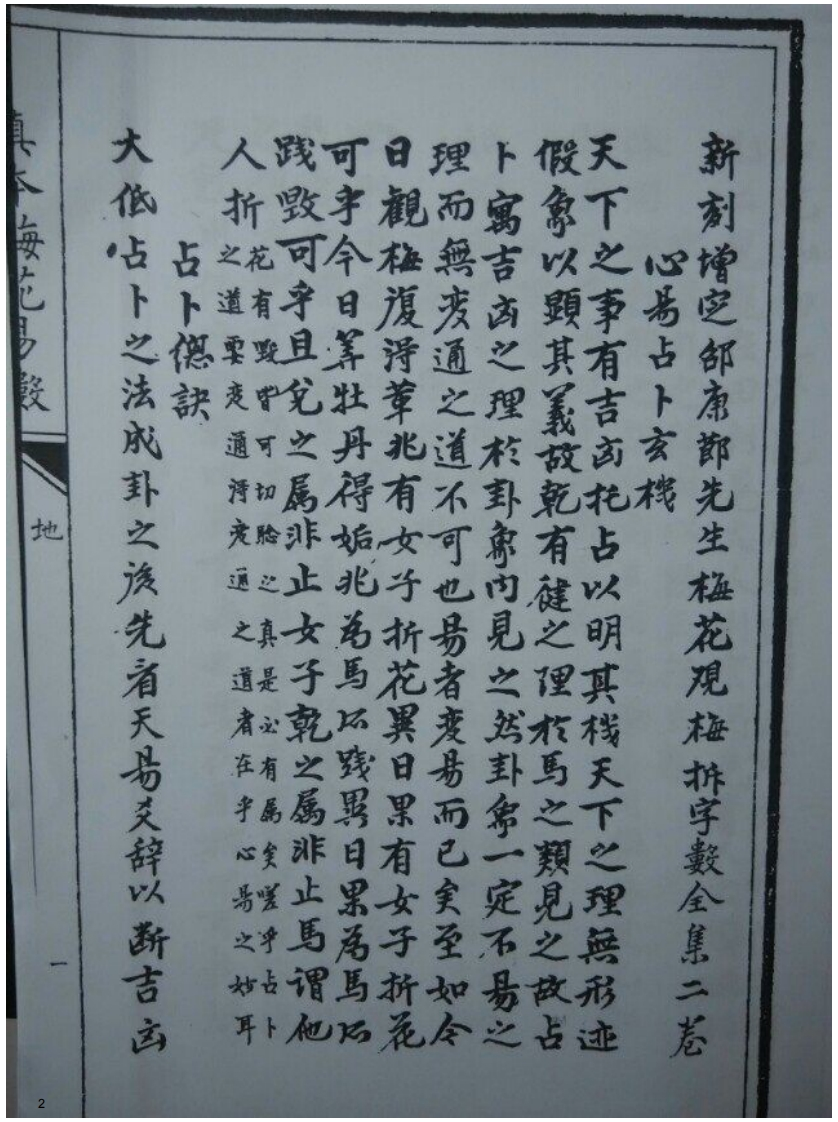 新刻增定邵康節先生梅花观梅拆字數全集二卷
心易占卜玄機
天下之事有吉凶托占以明其機天下之理無形迹
假象以顯其義故乾有健之理於馬之類見之故占
卜寓吉凶之理於卦象內見之然卦象一定不易之
理而無变通之道不可也易者变易而已矣至如今
日觀梅復淂革兆有女子折花異日果有女子折花
可乎今日筭牡丹得姤兆為馬所践異日果為馬所
践毀可乎且兌之属非止女子乾之属非止馬謂他
人折花有毀皆可切驗之真是必有属矣嗟乎占卜
之道要变通淂变通之道者在乎心易之妙耳
占卜總訣
大低占卜之法成卦之後先看天易爻辞以断吉凶
真本梅花易數
地
一
2